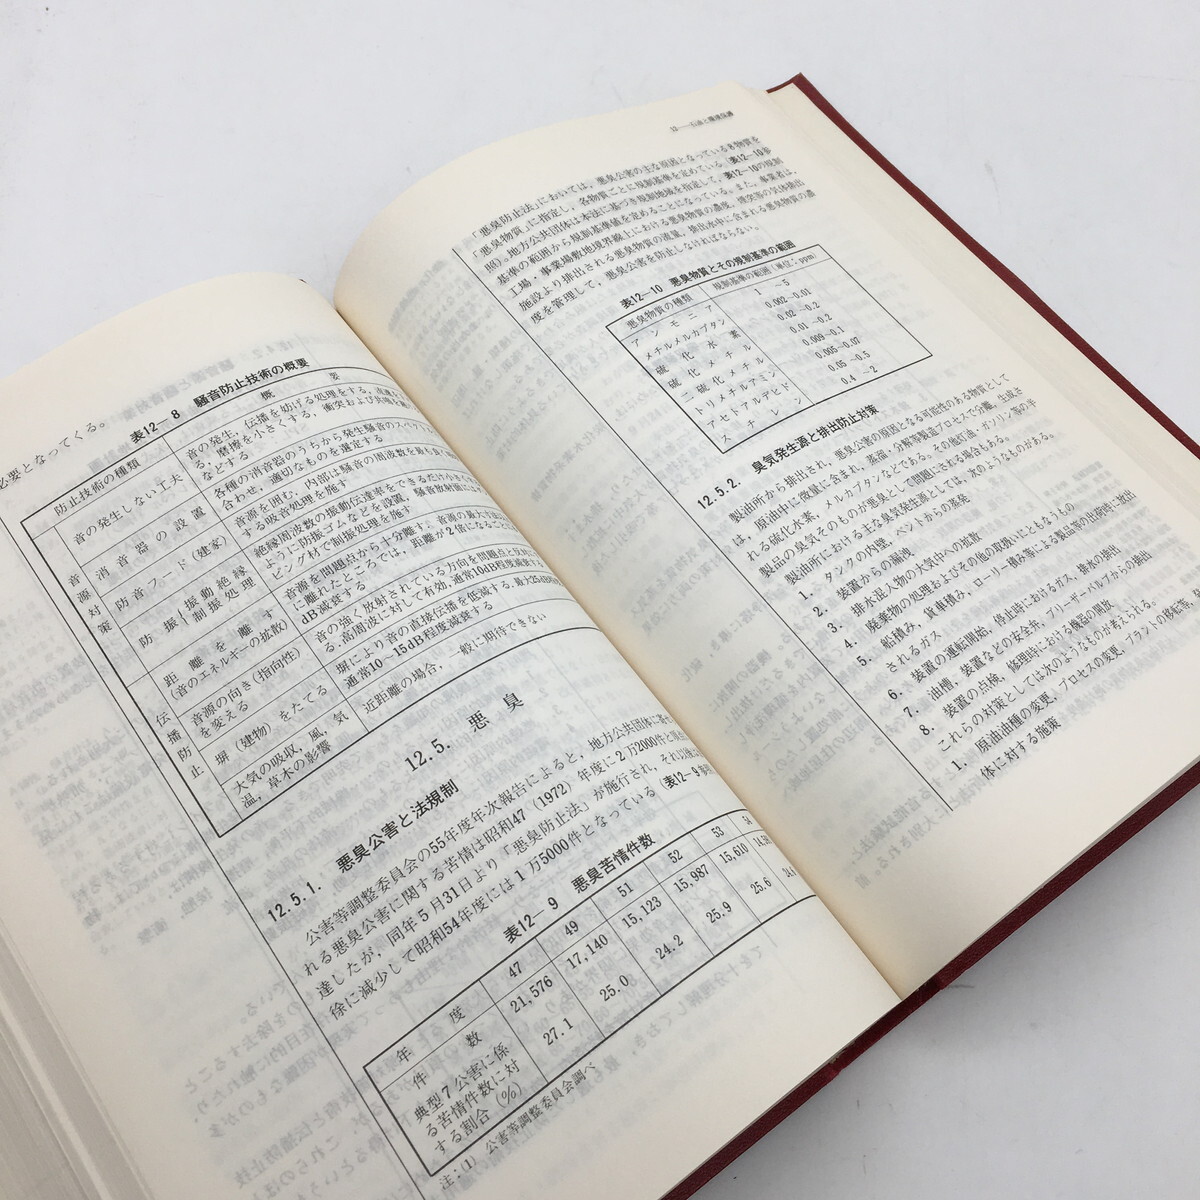 必要となってくる。
表12－8　騒音防止技術の概要
防止技術の種類　概　要
音源対策
音の発生しない工夫
音の発生，伝播を妨げる処理をする。
る，磨擦を小さくする，衝突および共鳴を
などする
消音器の設置
各種の消音器のうちから発生騒音のスペクト
合わせ，適切なものを選定する
防音フード（建家）
音源を囲む，内部は騒音の周波数を最も良く
する吸音処理を施す
防振｛振動絶縁
制振処理
絶縁周波数の振動伝達率をできるだけ小さく
ように防振ゴムなどを設置，騒音放射面には
ピング材で制振処理を施す
伝播防止
距離を離す
（音のエネルギーの拡散）
音源を問題点から十分離す。音源の最大寸法
に離れたところでは，距離が2倍になるごと
dB減衰する
音源の向き（指向性）
を変える
音の強く放射されている方向を問題点と反対
る。高周波に対して有効，通常10dB程度減衰する
塀（建物）をたてる
塀により音の直接伝播を低減する，最大25dB
通常10～15dB程度減衰する
大気の吸収，風，気
温，草木の影響
近距離の場合，一般に期待できない
12.5.　悪　臭
12.5.1.　悪臭公害と法規制
公害等調整委員会の55年度年次報告によると，地方公共団体に寄せ
れる悪臭公害に関する苦情は昭和47（1972）年度に2万2000件と
達したが，同年5月31日より「悪臭防止法」が施行され，それ以後
徐に減少して昭和54年度には1万5000件となっている（表12－9
表12－9　悪臭苦情件数
年　度　47　49　51　52　53　54
件　数　21,576　17,140　15,123　15,987　15,610
典型7公害に係
る苦情件数に対
する割合（%）
27.1　25.0　24.2　25.9　25.6
注：(1)　公害等調整委員会調べ
「悪臭防止法」においては，悪臭公害の主な原因となっている8物質を
「悪臭物質」に指定し，各物質ごとに規制基準を定めている（表12－10参
照）。地方公共団体は本法に基づき規制地域を指定して，表12－10の規制
基準の範囲から規制基準値を定めることになっている。また，事業者は，
工場・事業場敷地境界線上における悪臭物質の濃度，煙突等の気体排出
施設より排出される悪臭物質の流量，排出水中に含まれる悪臭物質の濃
度を管理して，悪臭公害を防止しなければならない。
表12－10　悪臭物質とその規制基準の範囲
悪臭物質の種類　規制基準の範囲（単位：ppm）
アンモニア　1　～5
メチルメルカプタン　0.002～0.01
硫化水素　0.02 ～0.2
硫化メチル　0.01 ～0.2
二硫化メチル　0.009～0.1
トリメチルアミン　0.005～0.07
アセトアルデヒド　0.05 ～0.5
スチレン　0.4 ～ 2
12.5.2.　臭気発生源と排出防止対策
製油所から排出され，悪臭公害の原因となる可能性のある物質として
は，原油中に微量に含まれ，蒸溜・分解等製造プロセスで分離，生成さ
れる硫化水素，メルカプタンなどである。その他灯油・ガソリン等の半
製品の臭気そのものが悪臭として問題にされる場合もある。
製油所における主な臭気発生源としては，次のようなものがある。
1．タンクの内壁，ベントからの蒸発
2．装置からの漏洩
3．排水混入物の大気中への拡散
4．廃棄物の処理およびその他の取扱いにともなうもの
5．船積み，貨車積み，ローリー積み等による製品等の出荷時に放出
されるガス
6．装置の運転開始，停止時におけるガス，排水の排出
7．油槽，装置などの安全弁，ブリーザーバルブからの排出
8．装置の点検，修理時における機器の開放
これらの対策としては次のようなものが考えられる。
1．原油油種の変更，プロセスの変更，プラントの移転等，
体に対する施策